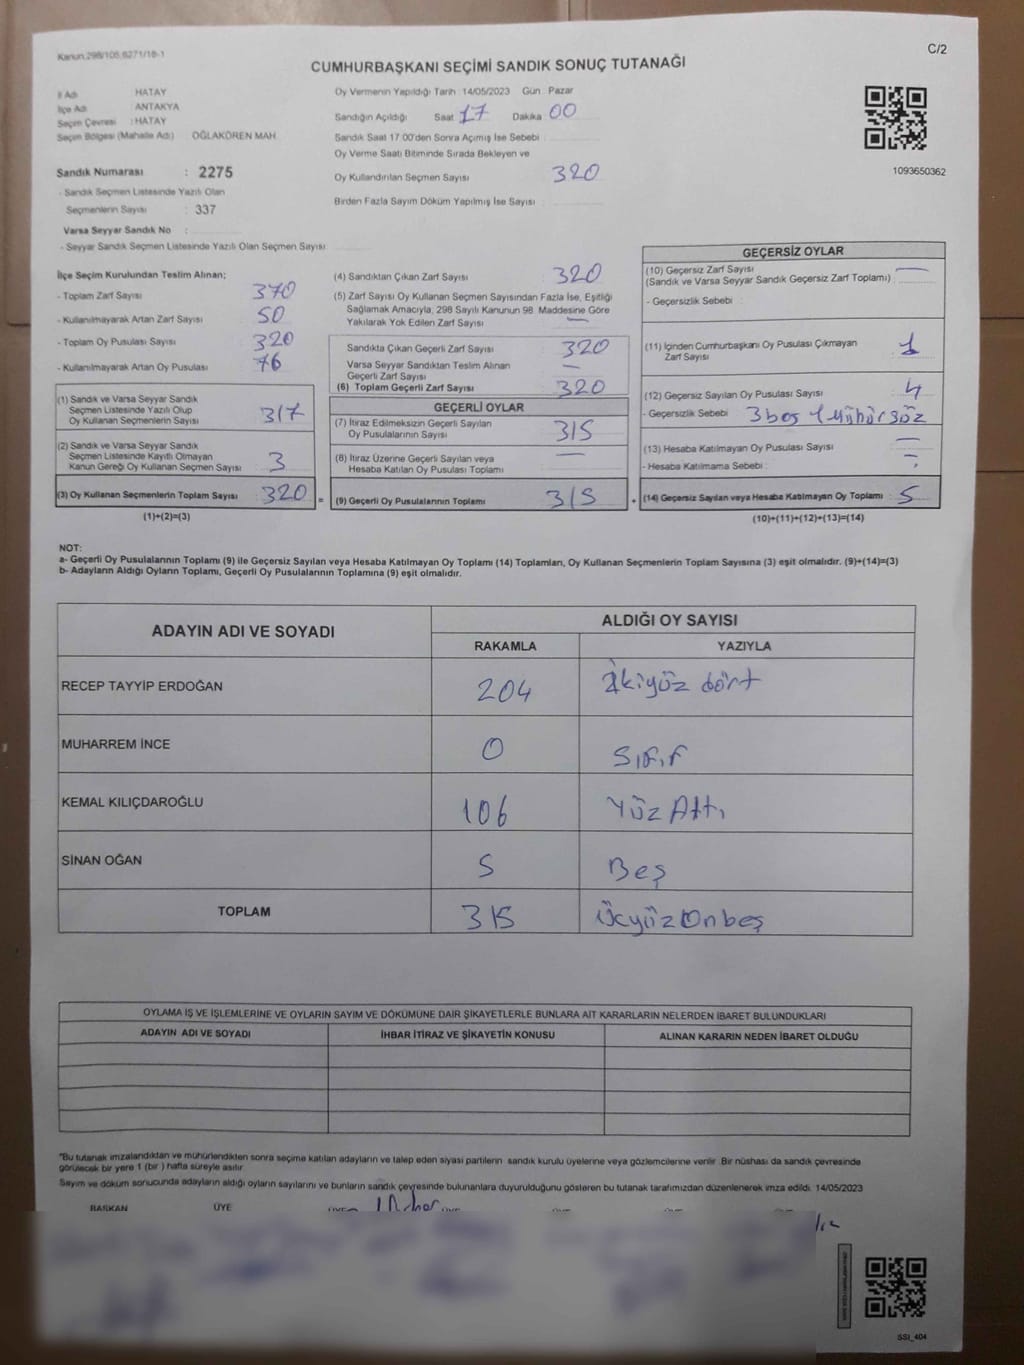 Kanun.298/105,6271/18-1
C/2
CUMHURBAŞKANI SEÇİMİ SANDIK SONUÇ TUTANAĞI
İl Adı HATAY
İlçe Adı ANTAKYA
Seçim Çevresi : HATAY
Seçim Bölgesi (Mahalle Adı) OĞLAKÖREN MAH.
Sandık Numarası : 2275
- Sandık Seçmen Listesinde Yazılı Olan
Seçmenlerin Sayısı : 337
Varsa Seyyar Sandık No :
- Seyyar Sandık Seçmen Listesinde Yazılı Olan Seçmen Sayısı
Oy Vermenin Yapıldığı Tarih : 14/05/2023 Gün : Pazar
Sandığın Açıldığı Saat 17 Dakika 00
Sandık Saat 17:00'den Sonra Açılmış İse Sebebi :
Oy Verme Saati Bitiminde Sırada Bekleyen ve
Oy Kullandırılan Seçmen Sayısı 320
Birden Fazla Sayım Döküm Yapılmış İse Sayısı :
1093650362
İlçe Seçim Kurulundan Teslim Alınan;
- Toplam Zarf Sayısı 370
- Kullanılmayarak Artan Zarf Sayısı 50
- Toplam Oy Pusulası Sayısı 320
- Kullanılmayarak Artan Oy Pusulası 76
(1) Sandık ve Varsa Seyyar Sandık
Seçmen Listesinde Yazılı Olup
Oy Kullanan Seçmenlerin Sayısı 317
(2) Sandık ve Varsa Seyyar Sandık
Seçmen Listesinde Kayıtlı Olmayan
Kanun Gereği Oy Kullanan Seçmen Sayısı 3
(3) Oy Kullanan Seçmenlerin Toplam Sayısı 320 =
(1)+(2)=(3)
(4) Sandıktan Çıkan Zarf Sayısı 320
(5) Zarf Sayısı Oy Kullanan Seçmen Sayısından Fazla İse, Eşitliği
Sağlamak Amacıyla, 298 Sayılı Kanunun 98. Maddesine Göre
Yakılarak Yok Edilen Zarf Sayısı —
Sandıkta Çıkan Geçerli Zarf Sayısı 320
Varsa Seyyar Sandıktan Teslim Alınan
Geçerli Zarf Sayısı —
(6) Toplam Geçerli Zarf Sayısı 320
GEÇERLİ OYLAR
(7) İtiraz Edilmeksizin Geçerli Sayılan
Oy Pusulalarının Sayısı 315
(8) İtiraz Üzerine Geçerli Sayılan veya
Hesaba Katılan Oy Pusulası Toplamı —
(9) Geçerli Oy Pusulalarının Toplamı 315 +
GEÇERSİZ OYLAR
(10) Geçersiz Zarf Sayısı —
(Sandık ve Varsa Seyyar Sandık Geçersiz Zarf Toplamı)
- Geçersizlik Sebebi :
(11) İçinden Cumhurbaşkanı Oy Pusulası Çıkmayan
Zarf Sayısı 1
(12) Geçersiz Sayılan Oy Pusulası Sayısı 4
- Geçersizlik Sebebi 3 boş 1 mühürsüz
(13) Hesaba Katılmayan Oy Pusulası Sayısı —
- Hesaba Katılmama Sebebi :
(14) Geçersiz Sayılan veya Hesaba Katılmayan Oy Toplamı : 5
(10)+(11)+(12)+(13)=(14)
NOT:
a- Geçerli Oy Pusulalarının Toplamı (9) ile Geçersiz Sayılan veya Hesaba Katılmayan Oy Toplamı (14) Toplamları, Oy Kullanan Seçmenlerin Toplam Sayısına (3) eşit olmalıdır. (9)+(14)=(3)
b- Adayların Aldığı Oyların Toplamı, Geçerli Oy Pusulalarının Toplamına (9) eşit olmalıdır.
ADAYIN ADI VE SOYADI ALDIĞI OY SAYISI
RAKAMLA YAZIYLA
RECEP TAYYİP ERDOĞAN 204 İkiyüz dört
MUHARREM İNCE 0 Sıfır
KEMAL KILIÇDAROĞLU 106 Yüz Altı
SİNAN OĞAN 5 Beş
TOPLAM 315 Üçyüz Onbeş
OYLAMA İŞ VE İŞLEMLERİNE VE OYLARIN SAYIM VE DÖKÜMÜNE DAİR ŞİKAYETLERLE BUNLARA AİT KARARLARIN NELERDEN İBARET BULUNDUKLARI
ADAYIN ADI VE SOYADI İHBAR İTİRAZ VE ŞİKAYETİN KONUSU ALINAN KARARIN NEDEN İBARET OLDUĞU
"Bu tutanak imzalandıktan ve mühürlendikten sonra seçime katılan adayların ve talep eden siyasi partilerin sandık kurulu üyelerine veya gözlemcilerine verilir. Bir nüshası da sandık çevresinde
görülecek bir yere 1 (bir ) hafta süreyle asılır.
Sayım ve döküm sonucunda adayların aldığı oyların sayılarını ve bunların sandık çevresinde bulunanlara duyurulduğunu gösteren bu tutanak tarafımızdan düzenlenerek imza edildi. 14/05/2023
BAŞKAN ÜYE
SSI_404